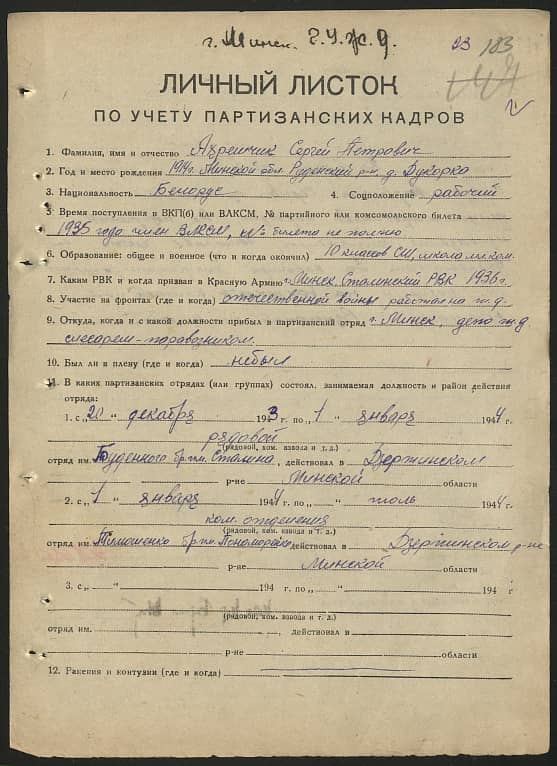 г. Минск. 2. У. Ж. Д.
23 183
ЛИЧНЫЙ ЛИСТОК
ПО УЧЕТУ ПАРТИЗАНСКИХ КАДРОВ
1. Фамилия, имя и отчество Сергей Петрович
2. Год и место рождения 1914г. Минской обл. Руденский р-н, д. Дукорка
3. Национальность Белорус 4. Соцположение рабочий
5. Время поступления в ВКП(б) или ВЛКСМ, № партийного или комсомольского билета
1935 года член ВЛКСМ, № билета не помню
6. Образование: общее и военное (что и когда окончил) 10 классов СШ, школа мл. ком.
7. Каким РВК и когда призван в Красную Армию г. Минск, Сталинский РВК 1936 г.
8. Участие на фронтах (где и когда) отечественной войны работал на ж.д.
9. Откуда, когда и с какой должности прибыл в партизанский отряд г. Минск, депо ж.д.
слесарем-паровозником.
10. Был ли в плену (где и когда) небыл
11. В каких партизанских отрядах (или группах) состоял, занимаемая должность и район действия
отряда:
1. с „20“ декабря 1943 г. по „1“ января 1944 г.
рядовой
(рядовой, ком. взвода и т. д.)
отряд им. Буденного бр. им. Сталина, действовал в Дзержинском
р-не Минской области
2. с „1“ января 1944 г. по „ “ июль 1944 г.
ком. отделения
(рядовой, ком. взвода и т. д.)
отряд им. Тимошенко бр. им. Пономаренко действовал в Дзержинском р-не
р-не Минской области
3. с „ “ 194 г. по „ “ 194 г.
(рядовой, ком. взвода и т. д.)
отряд им. , действовал в
р-не области
12. Ранения и контузии (где и когда)